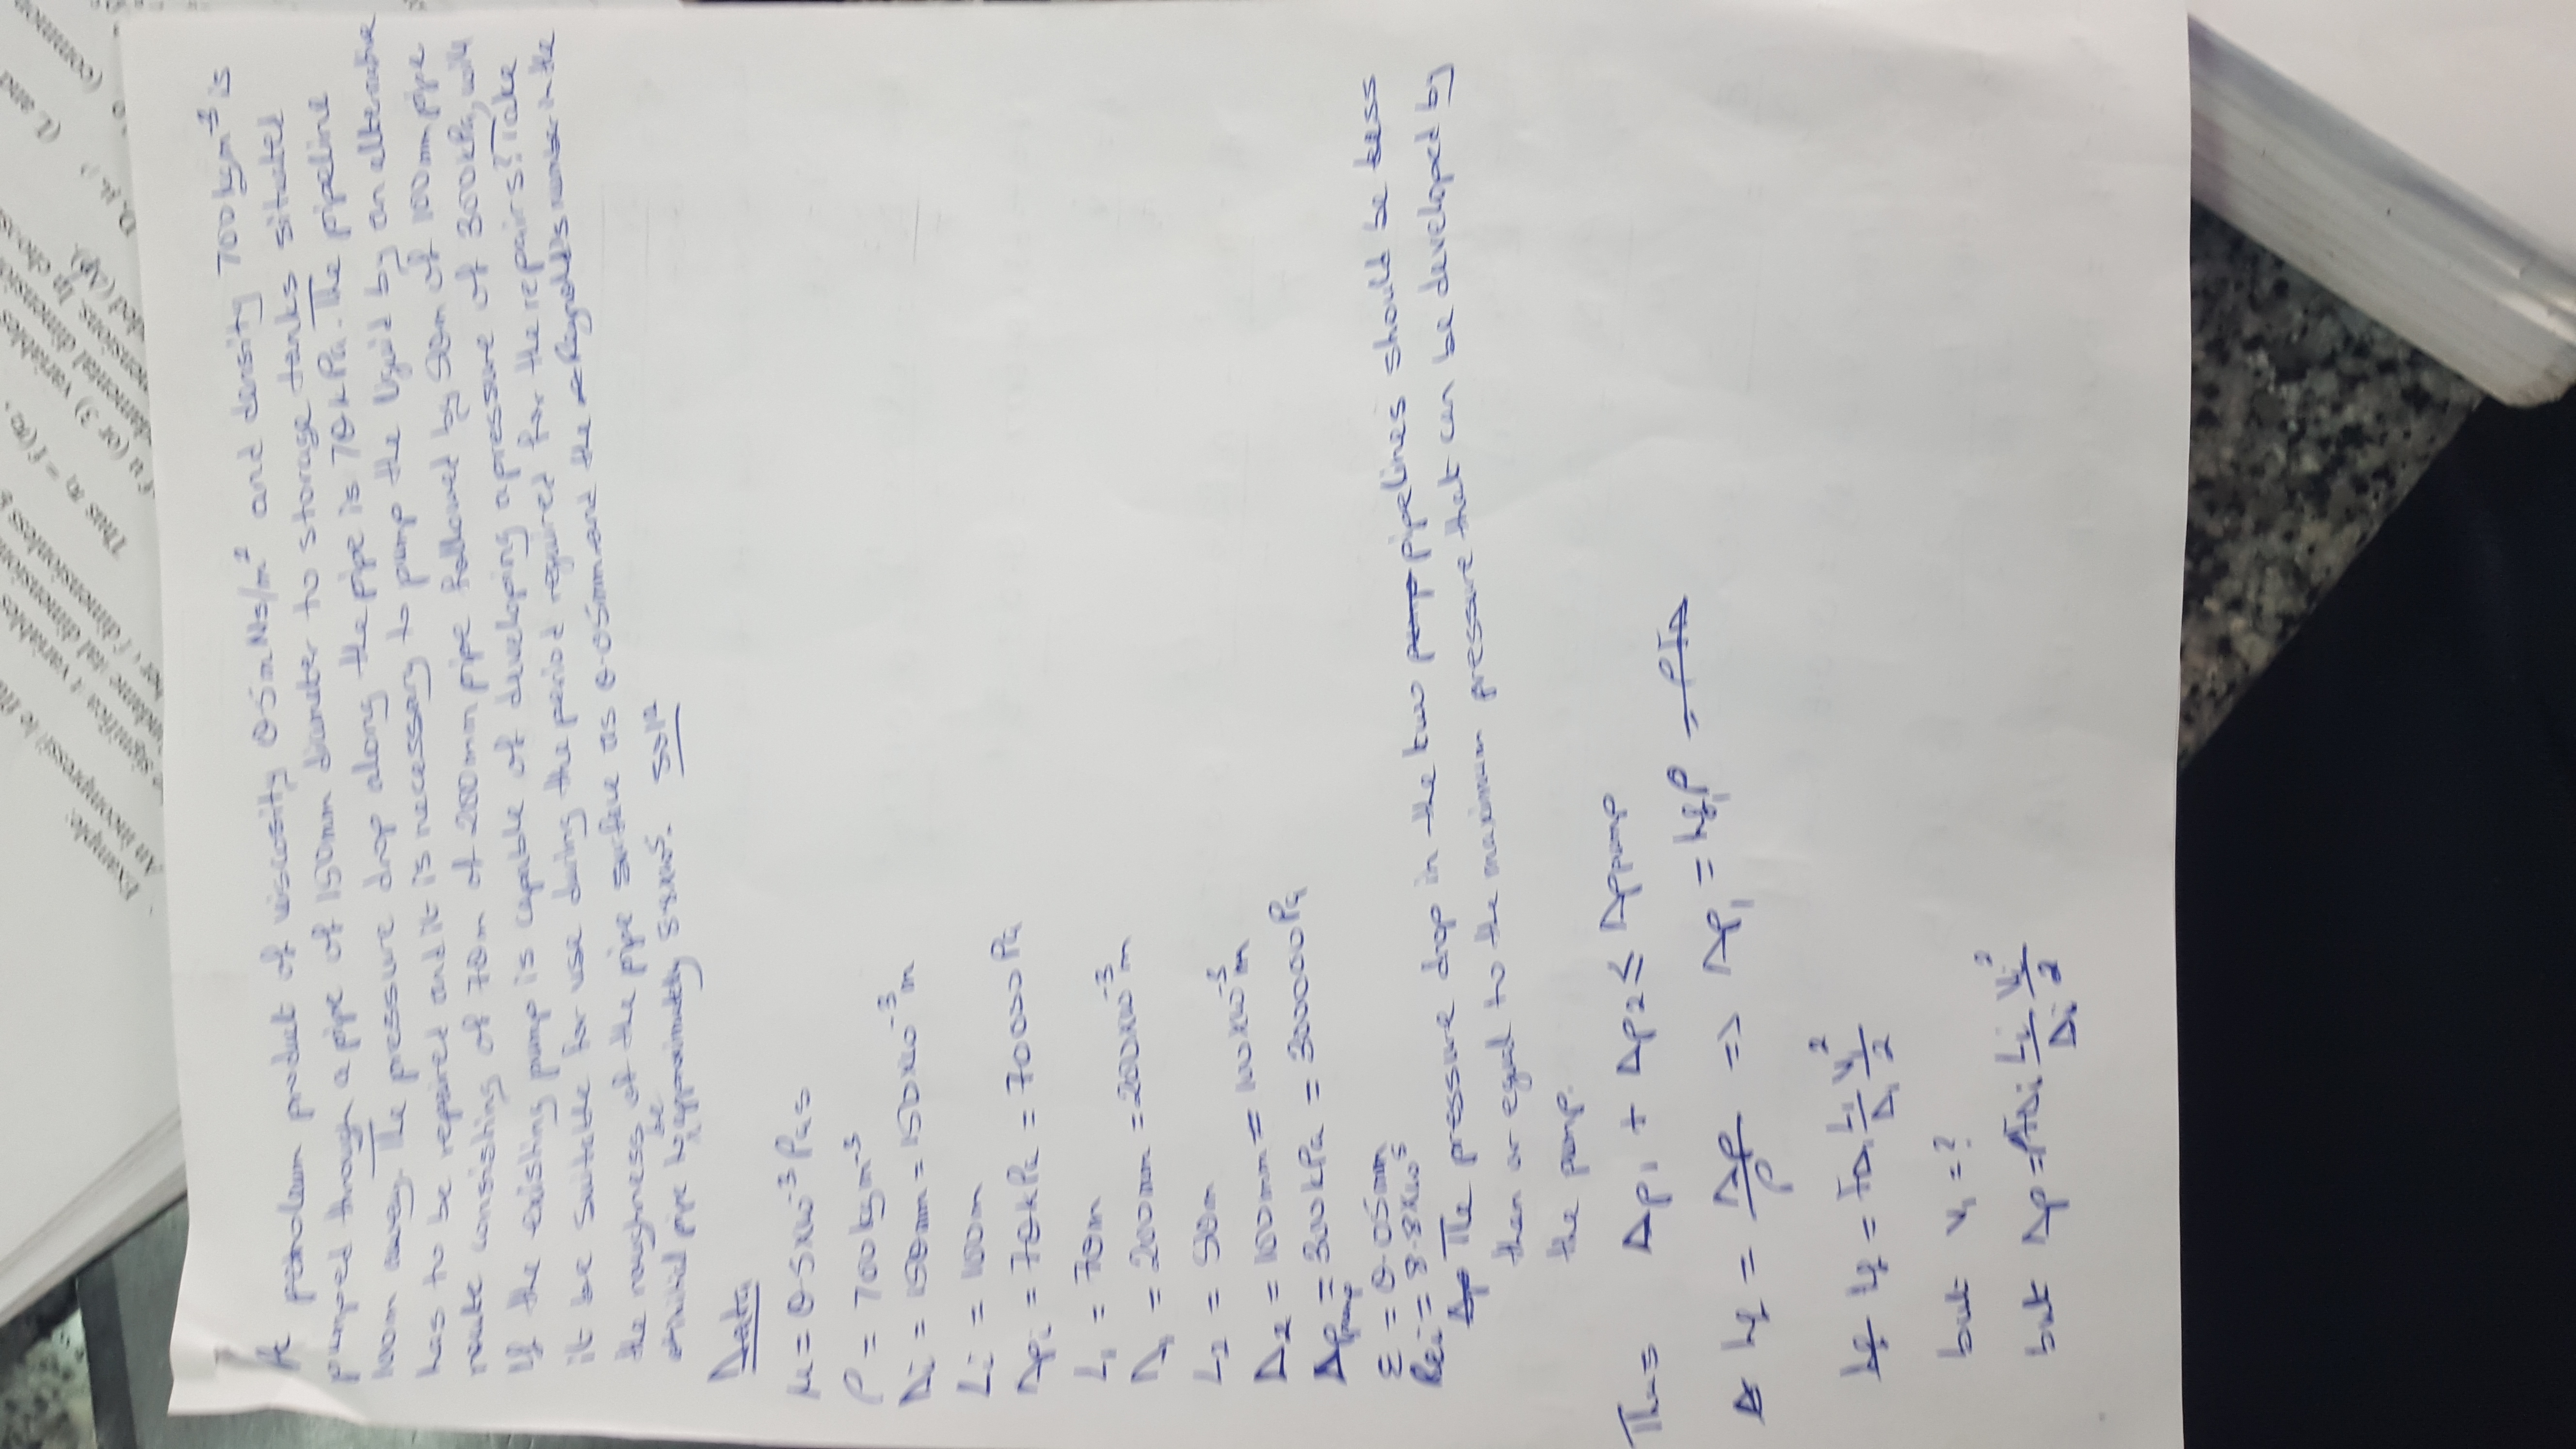 Example:
An incompressi
significa t variables
ndame tal dimension
ber f dimensionless
Thus π₁ = f (π₂,
f u (or 3) variables
damental dimensio
ensions. In choo
led (Δp).
D, μ,
(L and
(common
A petroleum product of viscosity 0.5mNs/m² and density 700kgm⁻³ is
pumped through a pipe of 150mm diameter to storage tanks situated
100m away. The pressure drop along the pipe is 70kPa. The pipeline
has to be repaired and it is necessary to pump the liquid by an alternative
route consisting of 70m of 200mm pipe followed by 50m of 100mm pipe
If the existing pump is capable of developing a pressure of 300kPa, will
it be suitable for use during the period required for the repairs? Take
the roughness of the pipe surface as 0.05mm and the Reynold's number in the
initial pipe to be approximately 8.8x10⁵. Solⁿ
Data
μ = 0.5x10⁻³Pas
ρ = 700kgm⁻³
Di = 150mm = 150x10⁻³m
Li = 100m
Δpi = 70kPa = 70000Pa
L₁ = 70m
D₁ = 200mm = 200x10⁻³m
L₂ = 50m
D₂ = 100mm = 100x10⁻³m
Δppump = 300kPa = 300000Pa
ε = 0.05mm
Rei = 8.8x10⁵
The pressure drop in the two pump pipelines should be less
than or equal to the maximum pressure that can be developed by
the pump.
Thus Δp₁ + Δp₂ ≤ Δppump
hf = Δp/ρ => Δp₁ = hf₁ρ = ρFD
hf = FD₁ L₁/D₁ V₁²/2
but V₁ = ?
but Δp = ρFDi Li/Di Vi²/2